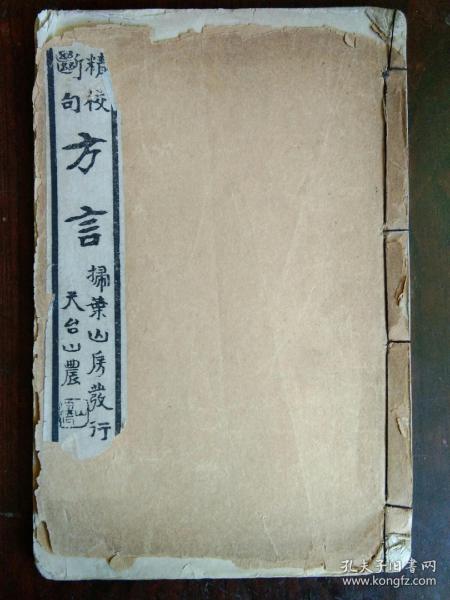 精校
斷句
方言
掃葉山房發行
天台山農
孔夫子旧书网
www.kongfz.com